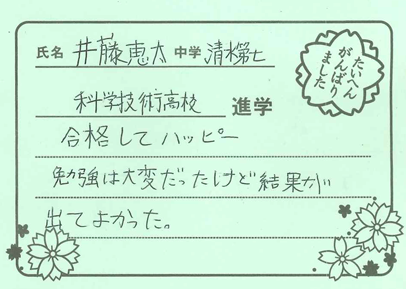 氏名 井藤恵太 中学 清水第七
たいへん
がんばり
ました
科学技術高校 進学
合格してハッピー
勉強は大変だったけど結果が
出てよかった。